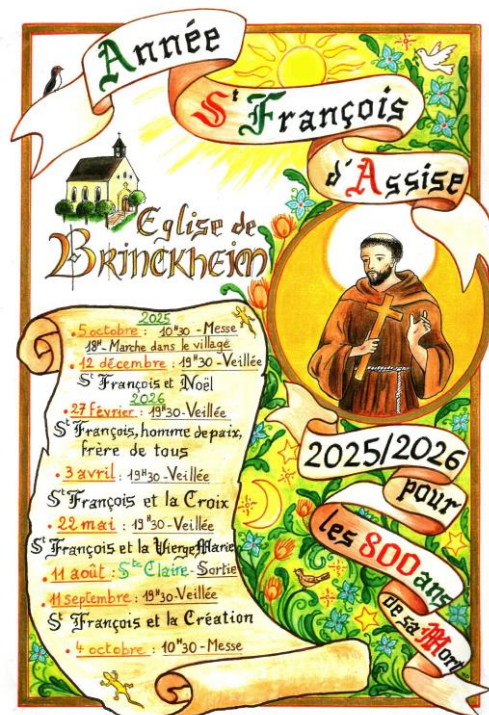 Année
St François
d'Assise
Eglise de
BRINCKHEIM
2025
• 5 octobre : 10H30 - Messe
18H - Marche dans le village
• 12 décembre : 19H30 - Veillée
St François et Noël
2026
• 27 Février : 19H30 - Veillée
St François, homme de paix,
frère de tous
• 3 avril : 19H30 - Veillée
St François et la Croix
• 22 mai : 19H30 - Veillée
St François et la Vierge Marie
• 11 août : Ste Claire - Sortie
• 11 septembre : 19H30 - Veillée
St François et la Création
• 4 octobre : 10H30 - Messe
2025/2026
pour
les 800 ans
de sa Mort